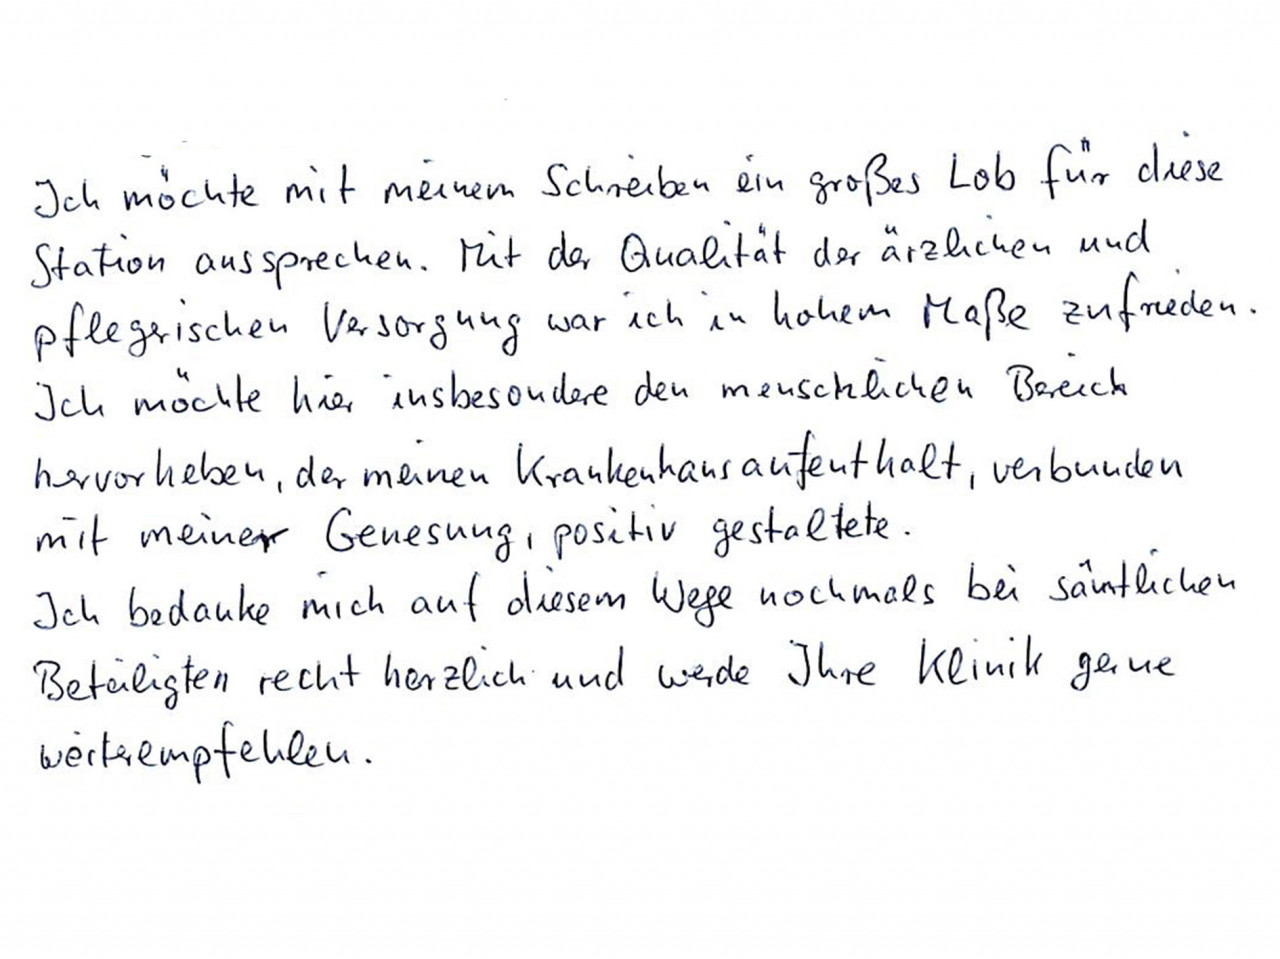 Ich möchte mit meinem Schreiben ein großes Lob für diese
Station aussprechen. Mit der Qualität der ärzlichen und
pflegerischen Versorgung war ich in hohem Maße zufrieden.
Ich möchte hier insbesondere den menschlichen Bereich
hervorheben, der meinen Krankenhausaufenthalt, verbunden
mit meiner Genesung, positiv gestaltete.
Ich bedanke mich auf diesem Wege nochmals bei sämtlichen
Beteiligten recht herzlich und werde Ihre Klinik gerne
weiterempfehlen.